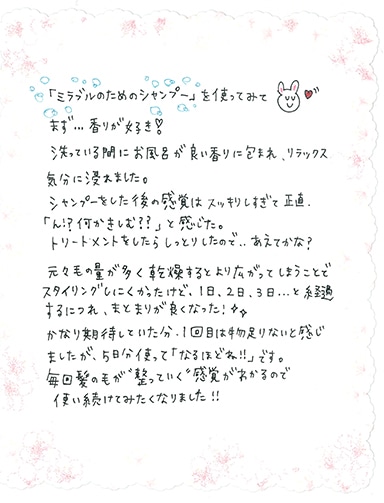 「ミラブルのためのシャンプー」を使ってみて
まず…香りが好き!
洗っている間にお風呂が良い香りに包まれ、リラックス
気分に浸れました。
シャンプーをした後の感覚はスッキリしすぎて正直、
「ん!?何かきしむ??」と感じた。
トリートメントをしたらしっとりしたので‥あえてかな?
元々毛の量が多く乾燥するとより広がってしまうことで
スタイリングしにくかったけど、1日、2日、3日…と経過
するにつれ、まとまりが良くなった!
かなり期待していた分、1回目は物足りないと感じ
ましたが、5日分使って「なるほどね!!」です。
毎回髪の毛が〝整っていく〟感覚がわかるので
使い続けてみたくなりました!!